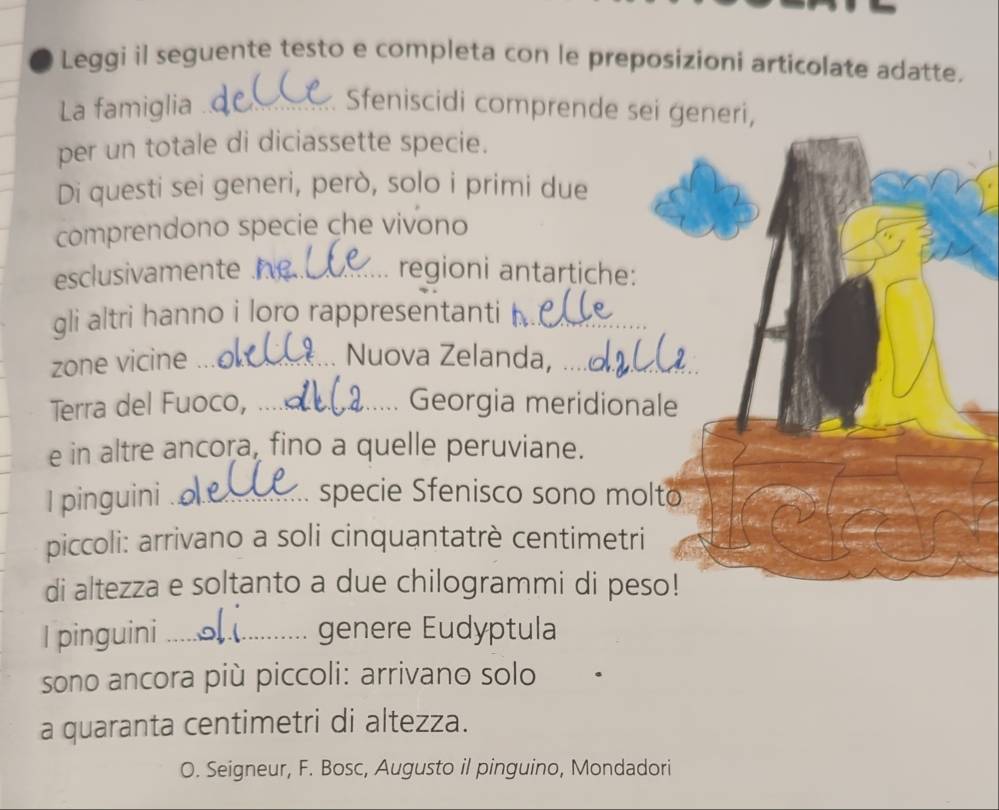 Leggi il seguente testo e completa con le preposizioni articolate adatte.
La famiglia delle Sfeniscidi comprende sei generi,
per un totale di diciassette specie.
Di questi sei generi, però, solo i primi due
comprendono specie che vivono
esclusivamente nelle regioni antartiche:
gli altri hanno i loro rappresentanti nelle
zone vicine della Nuova Zelanda, dalla
Terra del Fuoco, della Georgia meridionale
e in altre ancora, fino a quelle peruviane.
I pinguini delle specie Sfenisco sono molto
piccoli: arrivano a soli cinquantatrè centimetri
di altezza e soltanto a due chilogrammi di peso!
I pinguini di genere Eudyptula
sono ancora più piccoli: arrivano solo
a quaranta centimetri di altezza.
O. Seigneur, F. Bosc, Augusto il pinguino, Mondadori